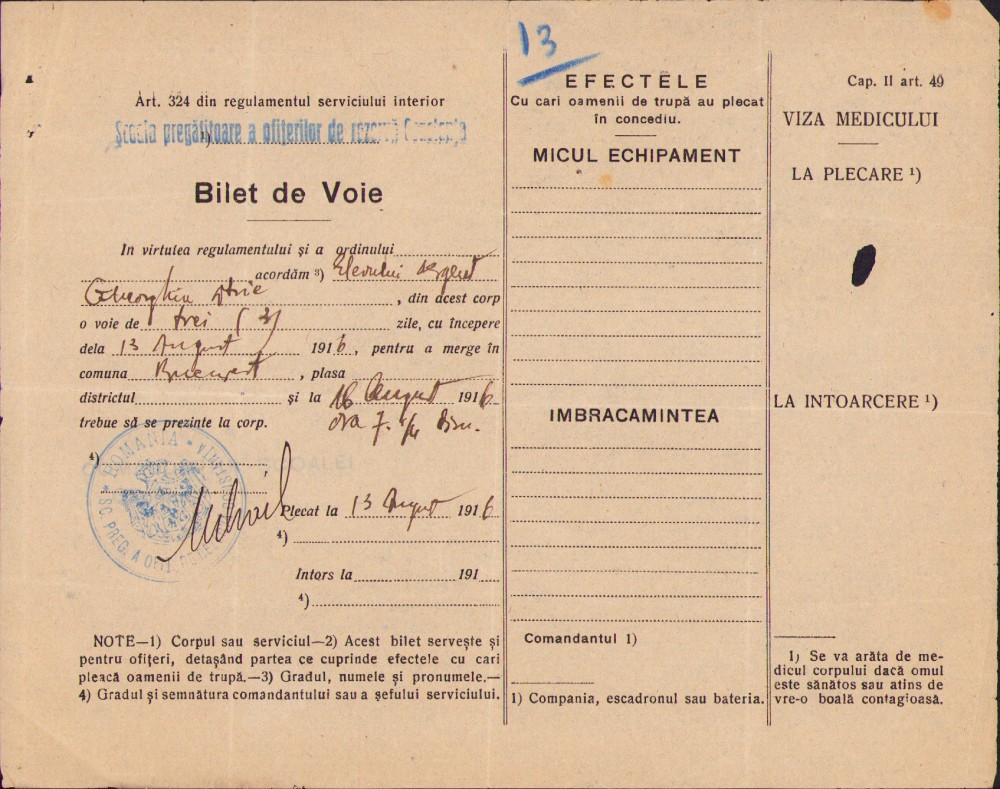 Art. 324 din regulamentul serviciului interior
Școala pregătitoare a ofițerilor de rezervă Constanța
1)
Bilet de Voie
In virtutea regulamentului și a ordinului
acordăm ³) Elevului Sergent
Gheorghiu , din acest corp
o voie de trei (3) zile, cu începere
dela 13 August 1916, pentru a merge în
comuna București , plasa
districtul și la 16 August 1916
trebue să se prezinte la corp. ora 7.
⁴)
ROMANIA
SC. PREG. A OFIȚ. DE REZ.
Plecat la 13 August 1916
⁴)
Intors la 191
⁴)
NOTE—1) Corpul sau serviciul—2) Acest bilet servește și
pentru ofițeri, detașând partea ce cuprinde efectele cu cari
pleacă oamenii de trupă.—3) Gradul, numele și pronumele.—
4) Gradul și semnătura comandantului sau a șefului serviciului.
13
EFECTELE
Cu cari oamenii de trupă au plecat
în concediu.
MICUL ECHIPAMENT
IMBRACAMINTEA
Comandantul 1)
1) Compania, escadronul sau bateria.
Cap. II art. 49
VIZA MEDICULUI
LA PLECARE ¹)
LA INTOARCERE ¹)
1) Se va arăta de me-
dicul corpului dacă omul
este sănătos sau atins de
vre-o boală contagioasă.